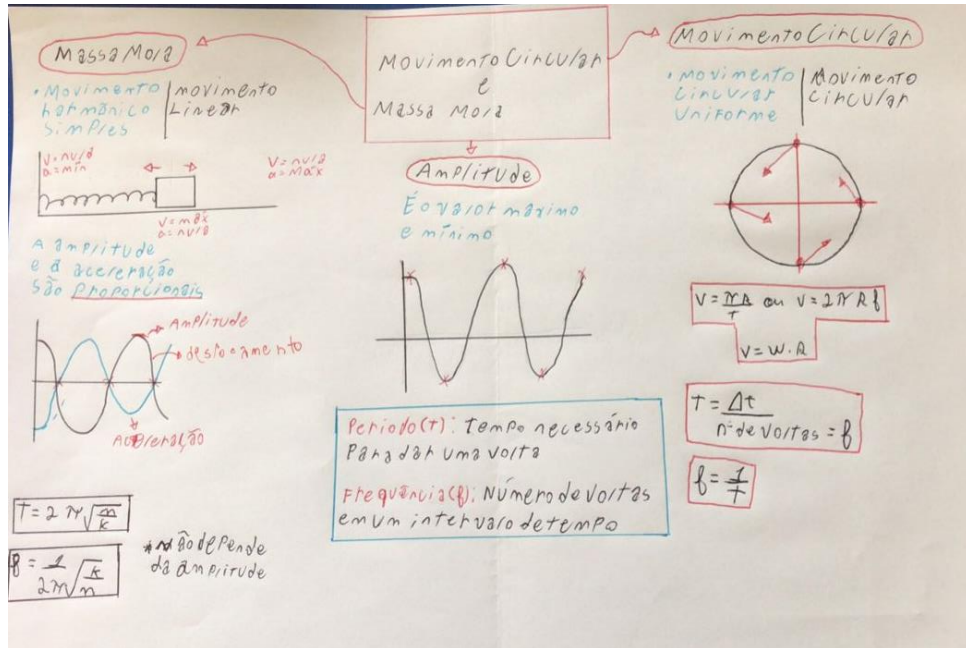 Movimento Circular
e
Massa Mola
Massa Mola
• Movimento
harmônico
Simples
movimento
Linear
V = nula
a = mín
V = nula
a = Máx
V = máx
a = nula
A amplitude
e a aceleração
são Proporcionais
Amplitude
deslocamento
Aceleração
T = 2π√m/k
f = 1/2π √k/m
* não depende
da amplitude
Amplitude
É o valor máximo
e mínimo
Período(T): Tempo necessário
Para dar uma volta
Frequência(f): Número de voltas
em um intervalo de tempo
Movimento Circular
• Movimento
Circular
Uniforme
Movimento
Circular
V = πR/T ou V = 2πRf
V = W.R
T = Δt
nº de voltas = f
f = 1/T